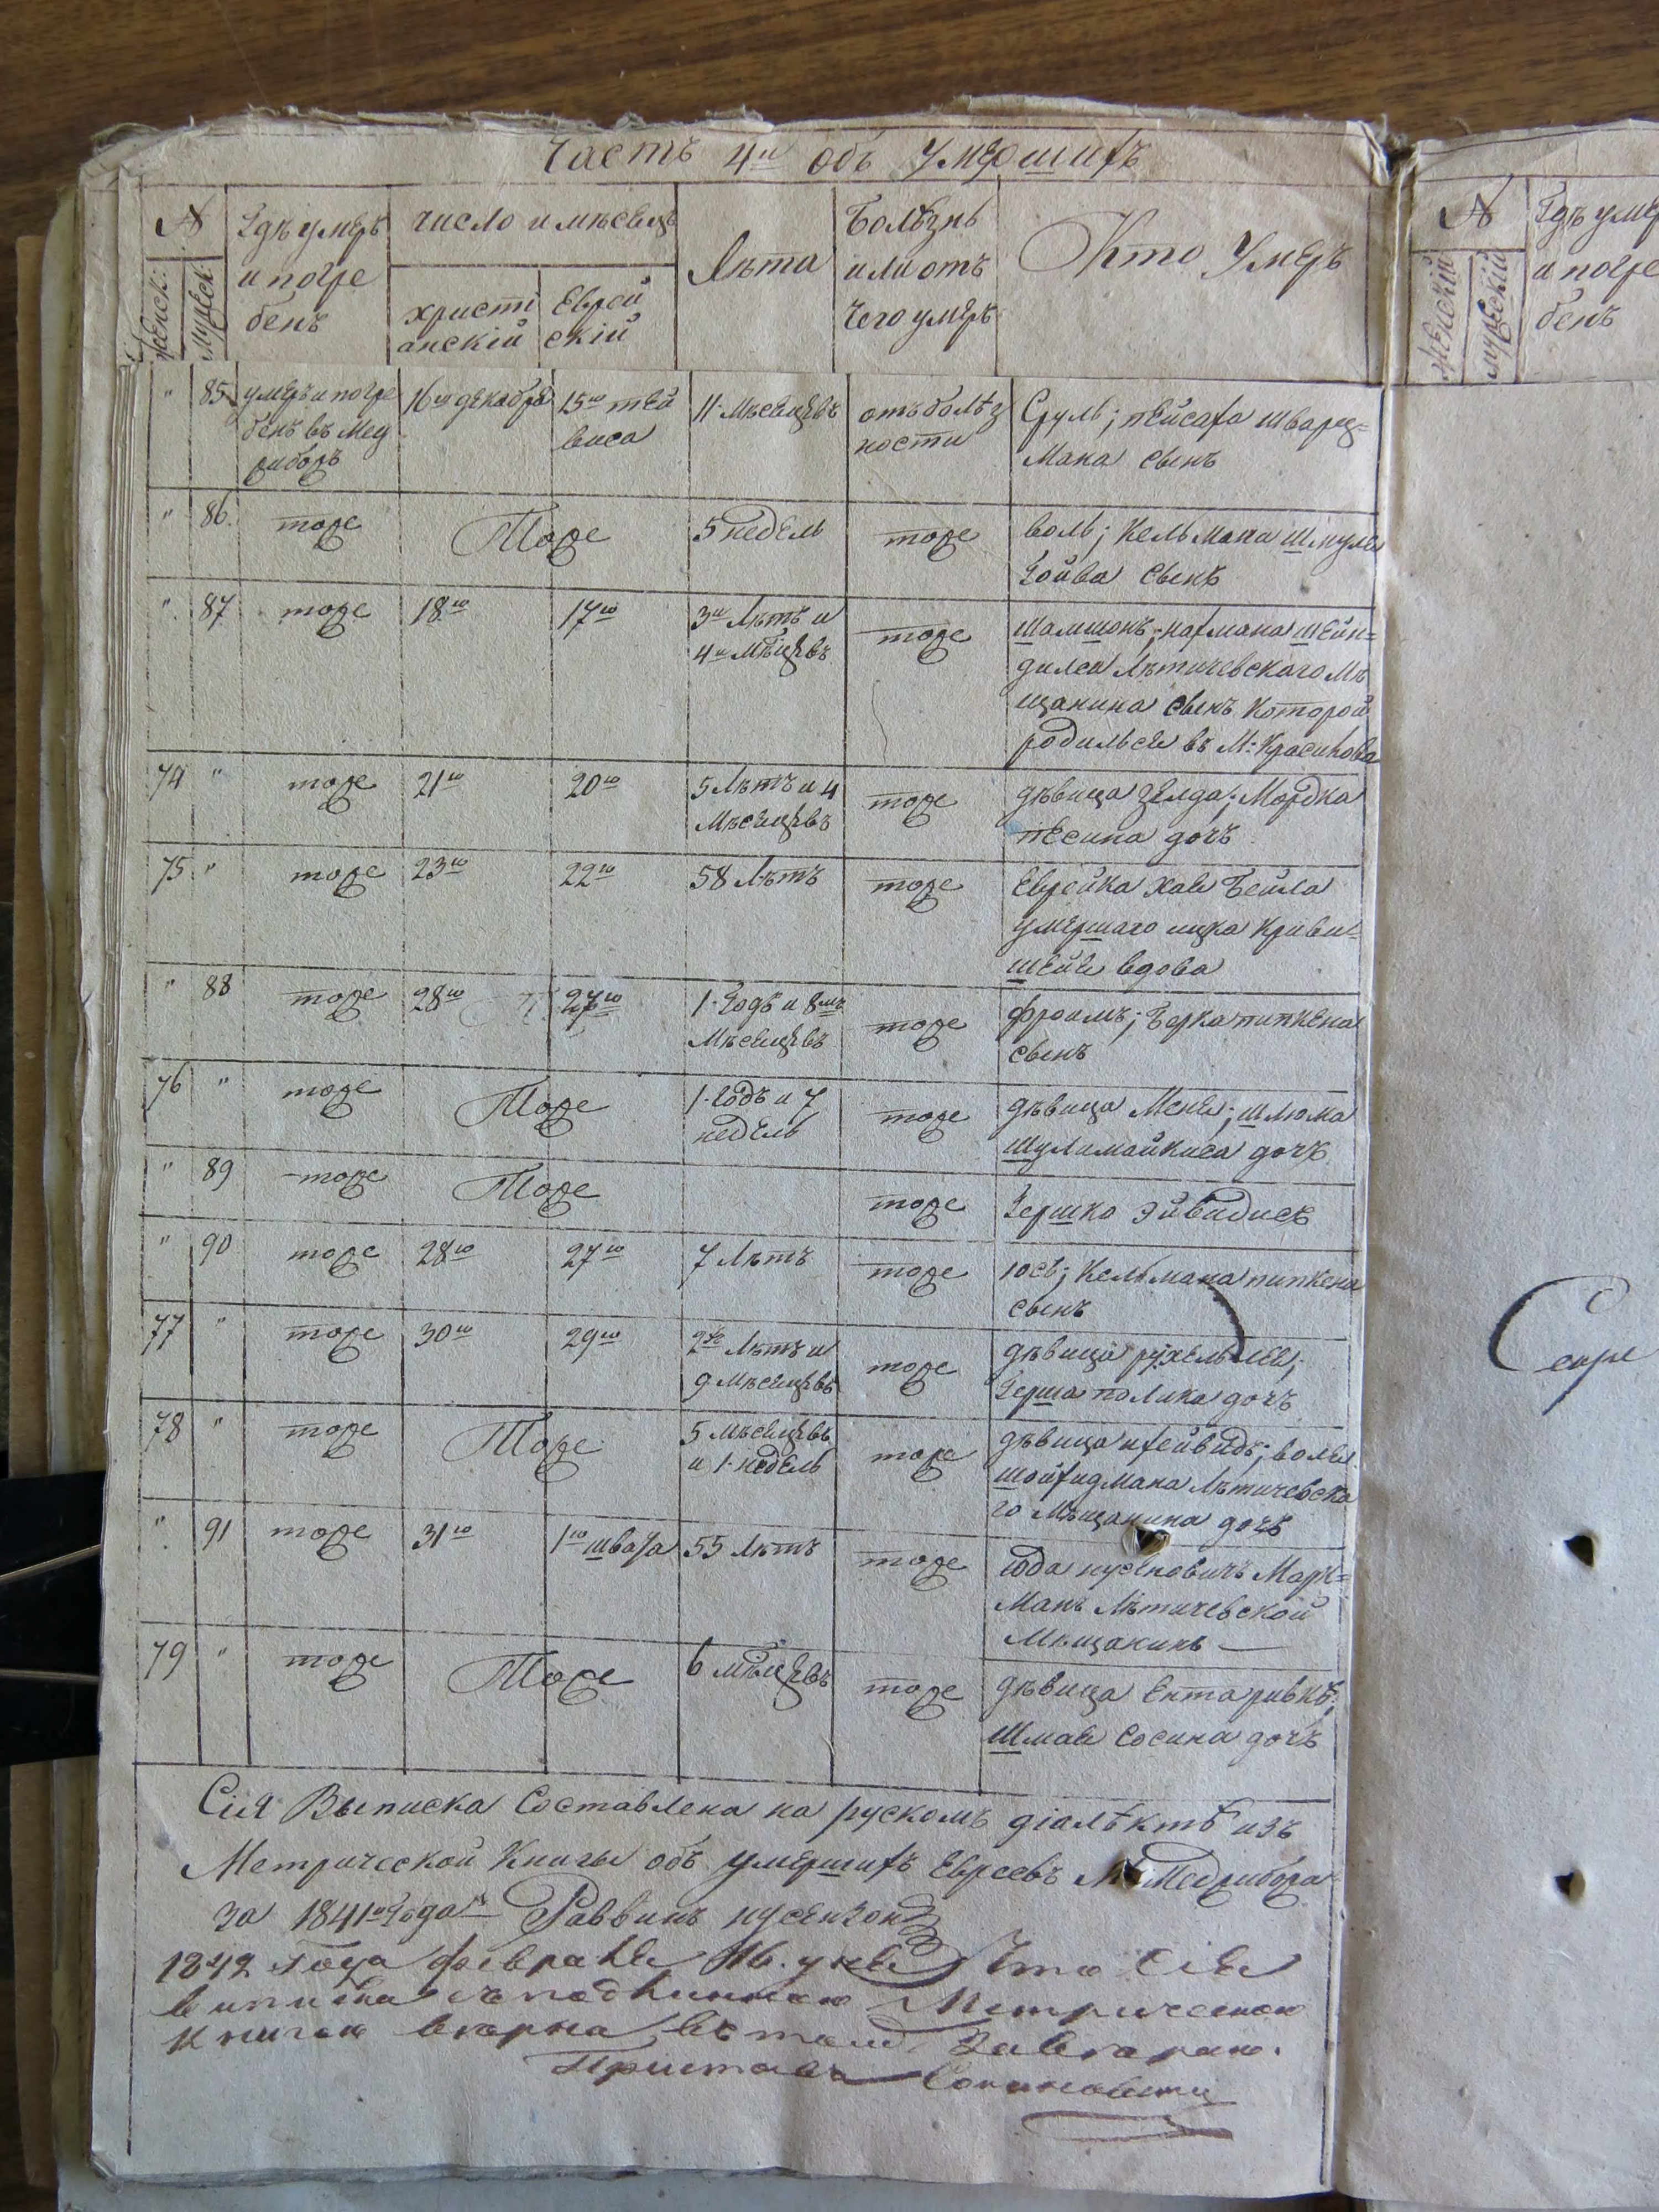 Часть 4я объ умершихъ
№
Женск:
Мужеск:
Гдѣ умеръ
и погре
бенъ
число и мѣсецъ
христі
анскій
Еврей
скій
Лѣта
Болѣзнь
или отъ
чего умеръ
Кто Умеръ
" 85 умеръ и погре
бенъ въ Мед
рибожъ
16го декабря
15го тей
виса
11 Мѣсецевъ
отъ болѣз
ности
Сруль; пейсаха шварц=
мана сынъ
" 86. тоже Тоже 5 недель тоже
воль; Кельмана шмуля
Гойва сынъ
" 87 тоже 18го 17го
3и Лѣтъ и
4и мѣцевъ
тоже
шамшонъ; нахмана шейн=
дилса Лѣтичевского мѣ
щанина сынъ которой
родился въ М: Красилова
74 " тоже 21го 20го
5 Лѣтъ и 4
Мѣсецевъ
тоже
дѣвица Зелда; Мордка
песина дочь
75 " тоже 23го 22го 58 Лѣтъ тоже
Еврейка хая Бейла
умершаго ицка Криви=
шейе вдова
" 88 тоже 28го 27го
1 Годъ и 8мъ
Мѣсецевъ
тоже
фроимъ; Берка пипкена
сынъ
76 " тоже Тоже
1 Годъ и 7
недель
тоже
дѣвица Меня; шлюма
шулимайкиса дочъ
" 89 тоже Тоже тоже Гершко Эйвидисъ
" 90 тоже 28го 27го 7 Лѣтъ тоже
юсь; Кельмана пипкена
сынъ
77 " тоже 30го 29го
2хъ Лѣтъ и
9 Мѣсецевъ
тоже
дѣвица рухель лея;
Герша полика дочъ
78 " тоже Тоже
5 мѣсецевъ
и 1 недель
тоже
дѣвица
шойхидмана Лѣтичевска
го Мѣщанина дочъ
" 91 тоже 31го 1го швата 55 Лѣтъ тоже
юда нусиновичъ Марк=
манъ Лѣтичевской
Мѣщанинъ
79 " тоже Тоже 6 мѣцевъ тоже
дѣвица Ента ривкѣ;
Шмая Сосина дочъ
Сія Выписка Составлена на рускомъ діалѣктѣ изъ
Метрической Книги объ умершихъ Евреевъ М: Меджибожа
за 1841го Года Раввинъ нусензонъ
1842 года февраля 16. дня что сия
выписка съ подлинною Метрическою
книгою верна въ томъ Заверяю.
Приставъ
№
Женскій
мужескій
Гдѣ умер
и погре
бенъ